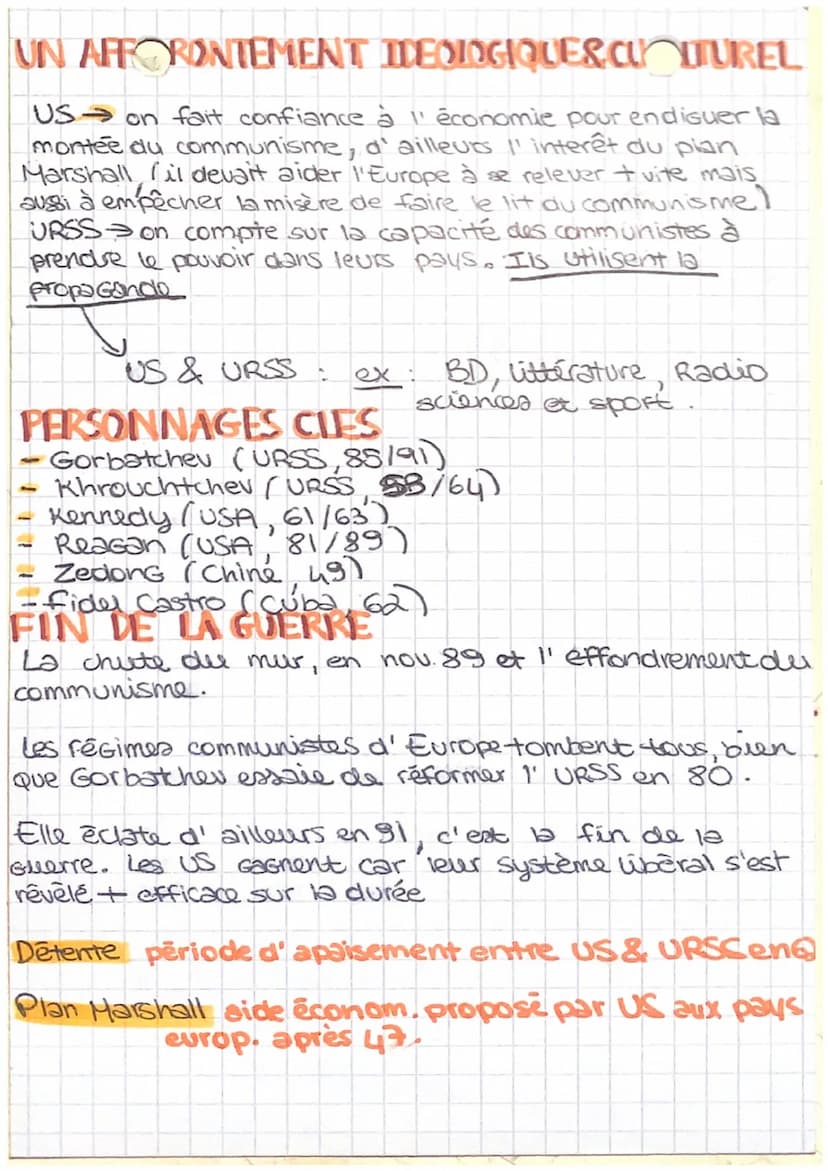 UN AFFRONTEMENT IDEOLOGIQUE&CULTUREL
US → on fait confiance à l'économie pour endiguer la
montée du communisme, d'ailleurs l'interêt du plan
Marshall (il devait aider l'Europe à se relever + vite mais
aussi à empêcher la misère de faire le lit du communisme)
URSS → on compte sur la capacité des communistes à
prendre le pouvoir dans leurs pays. Ils utilisent la
propagande
US & URSS : ex : BD, littérature, Radio
sciences et sport.
PERSONNAGES CLES
- Gorbatchev (URSS, 85/91)
- Khrouchtchev (URSS, 58/64)
- Kennedy (USA, 61/63)
- Reagan (USA, 81/89)
- Zedong (Chine, 49)
- Fidel Castro (Cuba, 62)
FIN DE LA GUERRE
La chute du mur, en nov. 89 et l'effondrement du
communisme.
Les régimes communistes d'Europe tombent tous, bien
que Gorbatchev essaie de réformer l'URSS en 80.
Elle éclate d'ailleurs en 91, c'est la fin de la
guerre. Les US gagnent car leur système libéral s'est
révélé + efficace sur la durée
Détente période d'apaisement entre US & URSS en
Plan Marshall aide économ. proposé par US aux pays
europ. après 47.